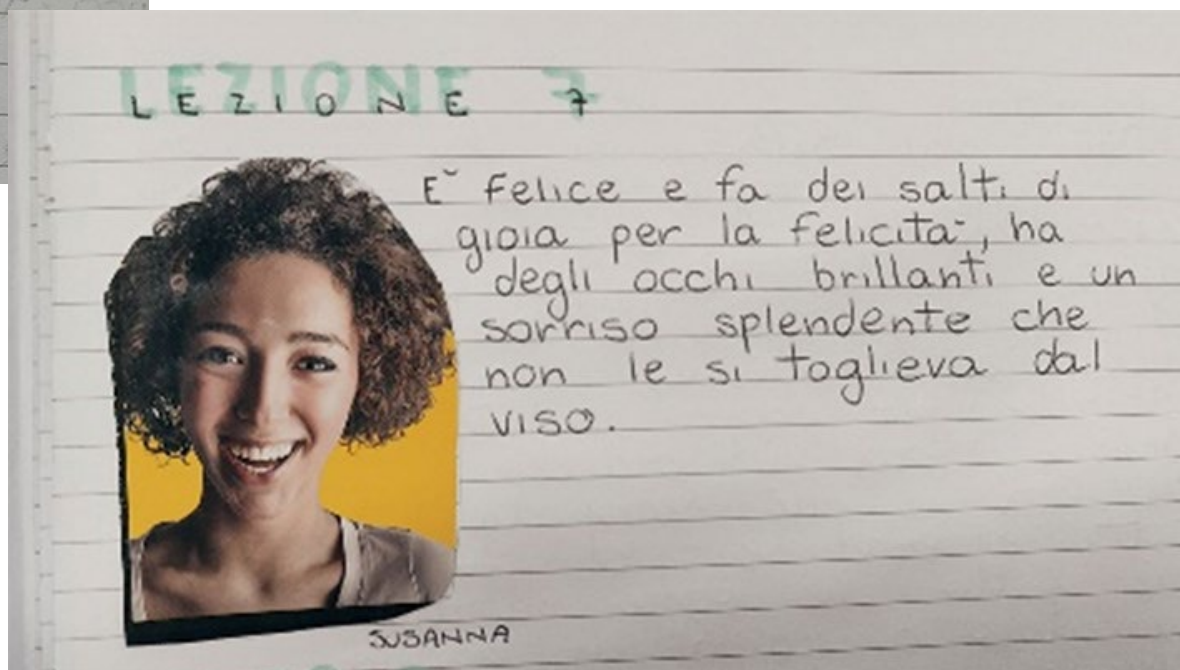 LEZIONE 7
E` felice e fa dei salti di
gioia per la felicita`, ha
degli occhi brillanti e un
sorriso splendente che
non le si toglieva dal
viso.
SUSANNA